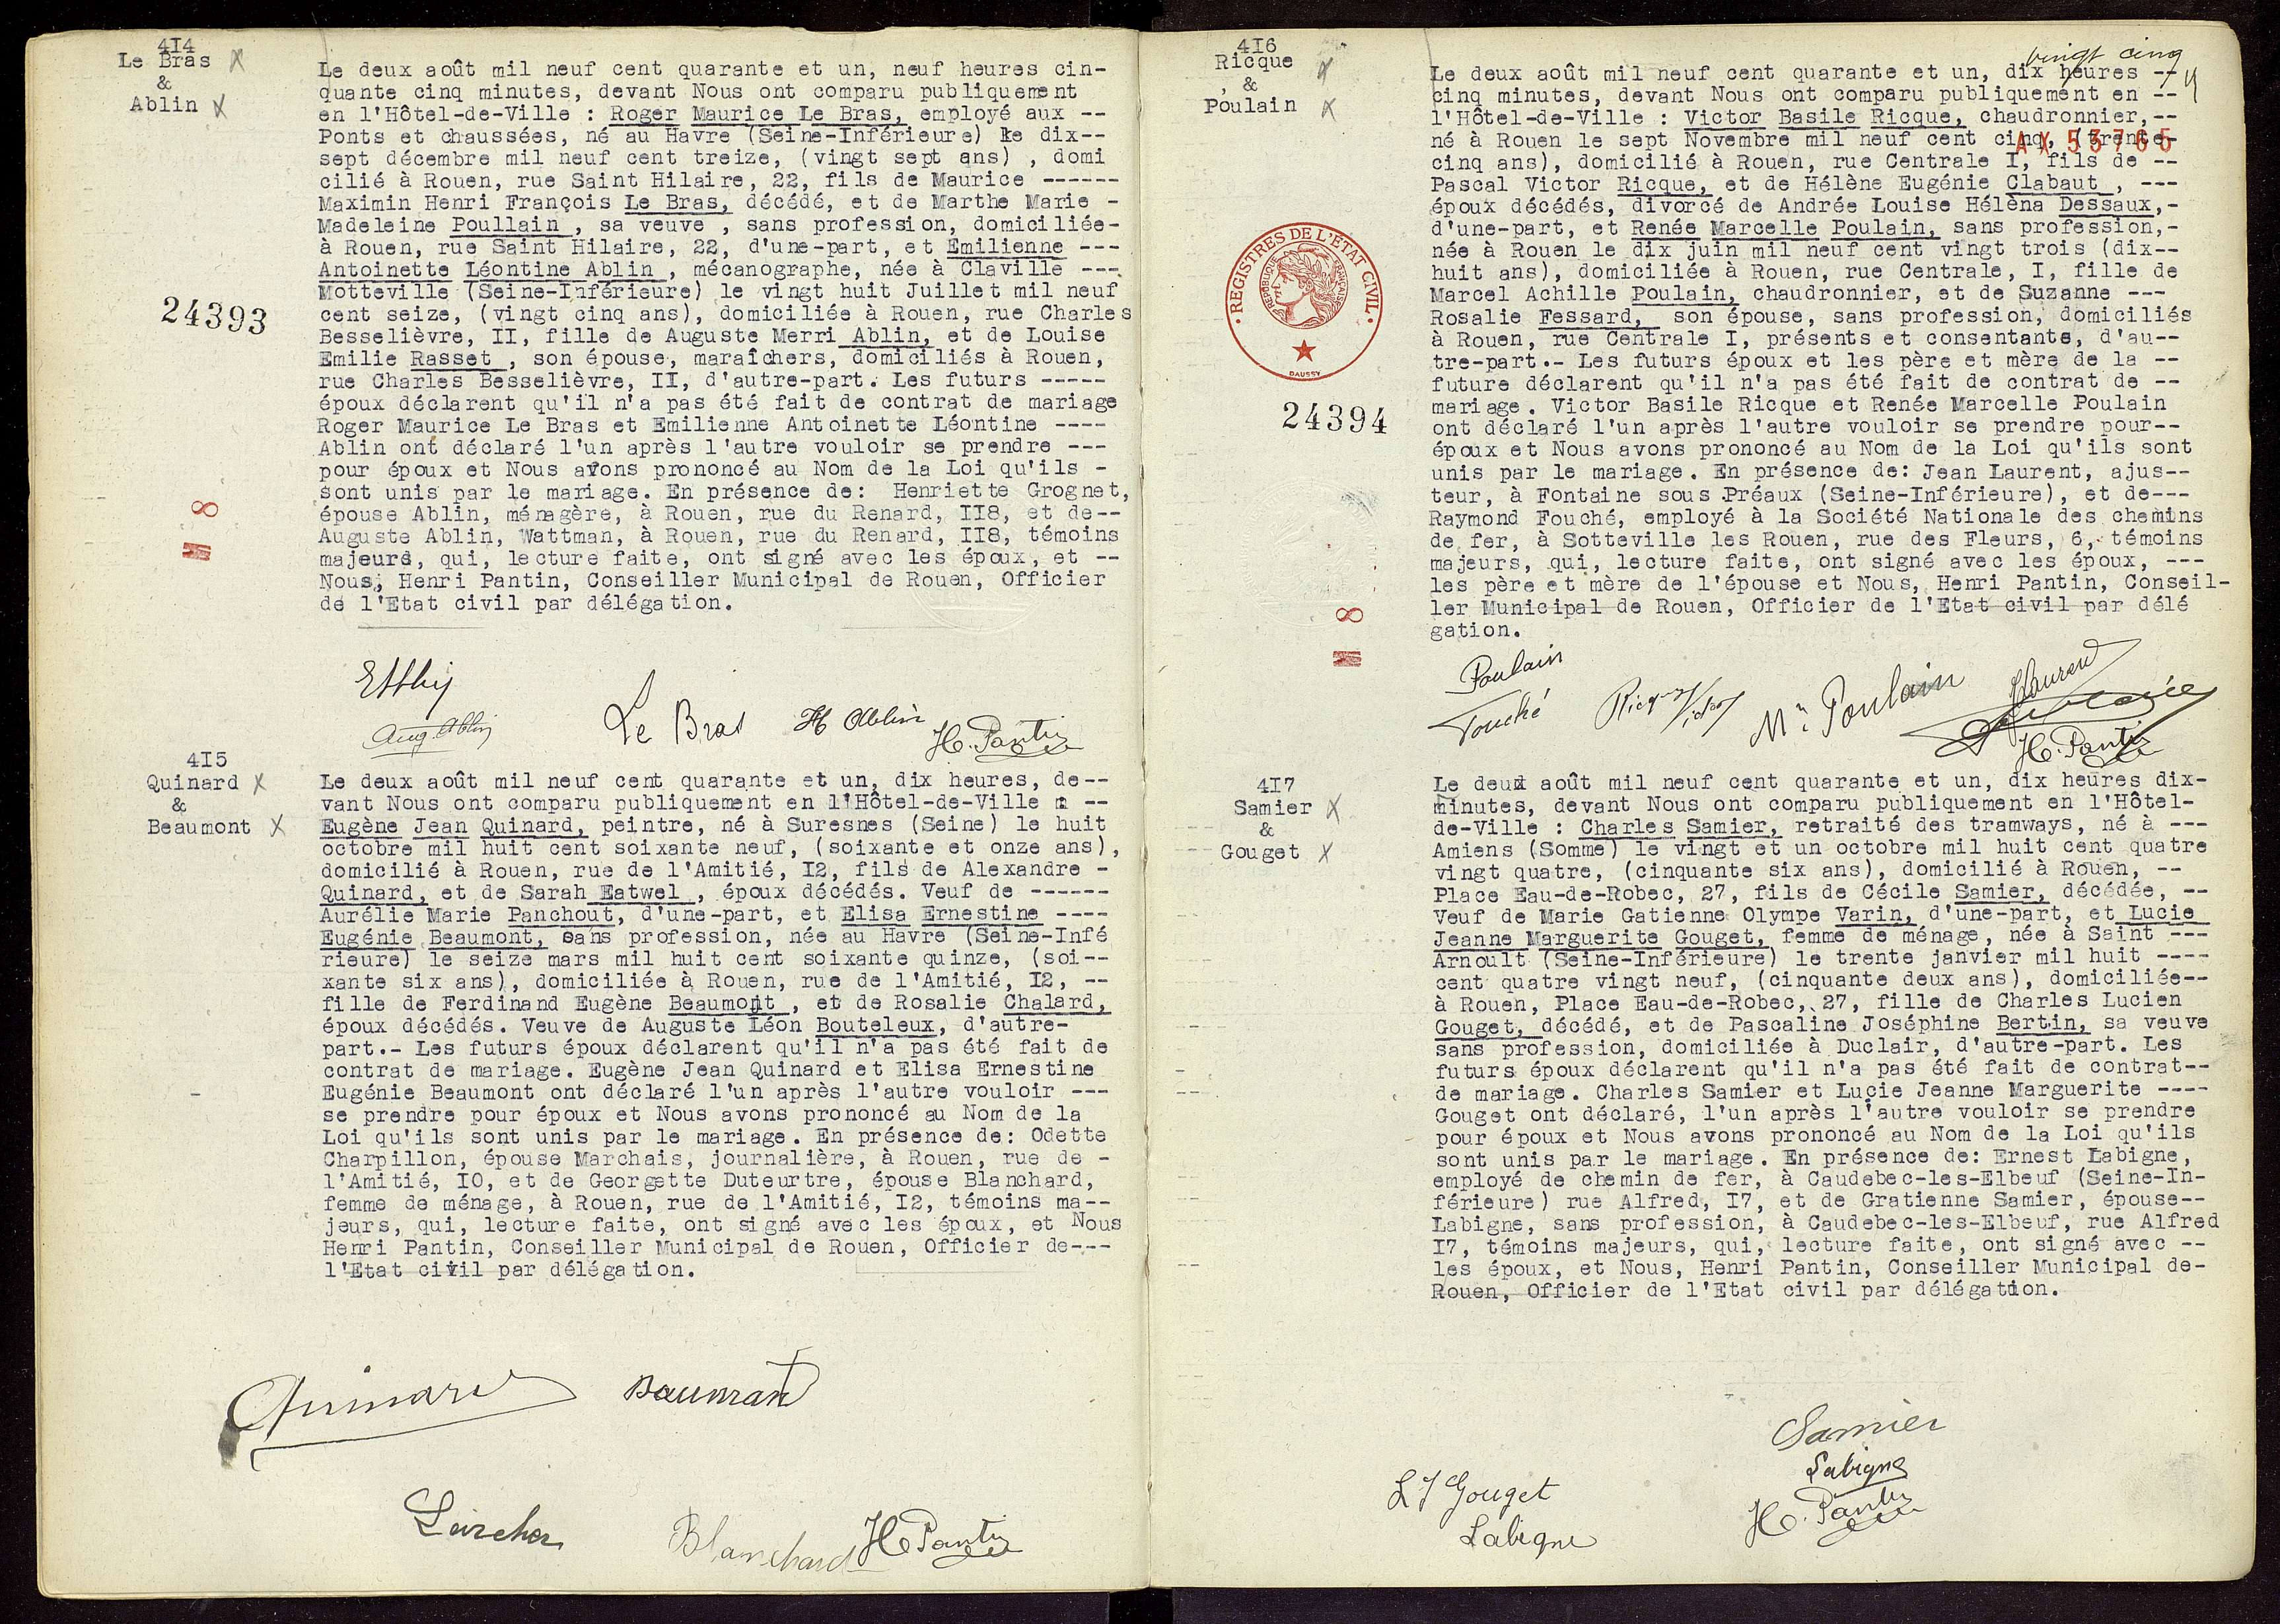 414
Le Bras X
&
Ablin X
Le deux août mil neuf cent quarante et un, neuf heures cin-
quante cinq minutes, devant Nous ont comparu publiquement
en l'Hôtel-de-Ville : Roger Maurice Le Bras, employé aux --
Ponts et chaussées, né au Havre (Seine-Inférieure) le dix--
sept décembre mil neuf cent treize, (vingt sept ans) , domi
cilié à Rouen, rue Saint Hilaire, 22, fils de Maurice ------
Maximin Henri François Le Bras, décédé, et de Marthe Marie -
Madeleine Poullain , sa veuve , sans profession, domiciliée-
à Rouen, rue Saint Hilaire, 22, d'une-part, et Emilienne ---
Antoinette Léontine Ablin , mécanographe, née à Claville ---
Motteville (Seine-Inférieure) le vingt huit Juillet mil neuf
cent seize, (vingt cinq ans), domiciliée à Rouen, rue Charles
Besselièvre, II, fille de Auguste Merri Ablin, et de Louise
Emilie Rasset , son épouse, maraîchers, domiciliés à Rouen,
rue Charles Besselièvre, II, d'autre-part. Les futurs -----
époux déclarent qu'il n'a pas été fait de contrat de mariage
Roger Maurice Le Bras et Emilienne Antoinette Léontine ----
Ablin ont déclaré l'un après l'autre vouloir se prendre ---
pour époux et Nous avons prononcé au Nom de la Loi qu'ils -
sont unis par le mariage. En présence de: Henriette Grognet,
épouse Ablin, ménagère, à Rouen, rue du Renard, II8, et de--
Auguste Ablin, Wattman, à Rouen, rue du Renard, II8, témoins
majeurs, qui, lecture faite, ont signé avec les époux, et --
Nous, Henri Pantin, Conseiller Municipal de Rouen, Officier
de l'Etat civil par délégation.
24393
8
M
Aug Ablin
Le Bras
H Ablin
H. Pantin
415
Quinard X
&
Beaumont X
Le deux août mil neuf cent quarante et un, dix heures, de--
vant Nous ont comparu publiquement en l'Hôtel-de-Ville : --
Eugène Jean Quinard, peintre, né à Suresnes (Seine) le huit
octobre mil huit cent soixante neuf, (soixante et onze ans),
domicilié à Rouen, rue de l'Amitié, I2, fils de Alexandre -
Quinard, et de Sarah Eatwel , époux décédés. Veuf de ------
Aurélie Marie Panchout, d'une-part, et Elisa Ernestine ----
Eugénie Beaumont, sans profession, née au Havre (Seine-Infé
rieure) le seize mars mil huit cent soixante quinze, (soi--
xante six ans), domiciliée à Rouen, rue de l'Amitié, I2, --
fille de Ferdinand Eugène Beaumont , et de Rosalie Chalard,
époux décédés. Veuve de Auguste Léon Bouteleux, d'autre-
part.- Les futurs époux déclarent qu'il n'a pas été fait de
contrat de mariage. Eugène Jean Quinard et Elisa Ernestine
Eugénie Beaumont ont déclaré l'un après l'autre vouloir ---
se prendre pour époux et Nous avons prononcé au Nom de la
Loi qu'ils sont unis par le mariage. En présence de: Odette
Charpillon, épouse Marchais, journalière, à Rouen, rue de -
l'Amitié, IO, et de Georgette Duteurtre, épouse Blanchard,
femme de ménage, à Rouen, rue de l'Amitié, I2, témoins ma--
jeurs, qui, lecture faite, ont signé avec les époux, et Nous
Henri Pantin, Conseiller Municipal de Rouen, Officier de---
l'Etat civil par délégation.
Quinard
Blanchard
H. Pantin
416
Ricque X
&
Poulain X
vingt cinq
AX 53765
Le deux août mil neuf cent quarante et un, dix heures --
cinq minutes, devant Nous ont comparu publiquement en --
l'Hôtel-de-Ville : Victor Basile Ricque, chaudronnier,--
né à Rouen le sept Novembre mil neuf cent cinq, (trente-
cinq ans), domicilié à Rouen, rue Centrale I, fils de --
Pascal Victor Ricque, et de Hélène Eugénie Clabaut , ---
époux décédés, divorcé de Andrée Louise Hélèna Dessaux,-
d'une-part, et Renée Marcelle Poulain, sans profession,-
née à Rouen le dix juin mil neuf cent vingt trois (dix--
huit ans), domiciliée à Rouen, rue Centrale, I, fille de
Marcel Achille Poulain, chaudronnier, et de Suzanne ---
Rosalie Fessard, son épouse, sans profession, domiciliés
à Rouen, rue Centrale I, présents et consentants, d'au--
tre-part.- Les futurs époux et les père et mère de la --
future déclarent qu'il n'a pas été fait de contrat de --
mariage. Victor Basile Ricque et Renée Marcelle Poulain
ont déclaré l'un après l'autre vouloir se prendre pour--
époux et Nous avons prononcé au Nom de la Loi qu'ils sont
unis par le mariage. En présence de: Jean Laurent, ajus--
teur, à Fontaine sous Préaux (Seine-Inférieure), et de---
Raymond Fouché, employé à la Société Nationale des chemins
de fer, à Sotteville les Rouen, rue des Fleurs, 6, témoins
majeurs, qui, lecture faite, ont signé avec les époux, ---
les père et mère de l'épouse et Nous, Henri Pantin, Conseil-
ler Municipal de Rouen, Officier de l'Etat civil par délé
gation.
REGISTRES DE L'ÉTAT CIVIL
RÉPUBLIQUE FRANÇAISE
DAUSSY
24394
8
M
Poulain
Fouché
Ricque Victor
Mme Poulain
H. Pantin
417
Samier X
&
Gouget X
Le deux août mil neuf cent quarante et un, dix heures dix-
minutes, devant Nous ont comparu publiquement en l'Hôtel-
de-Ville : Charles Samier, retraité des tramways, né à ---
Amiens (Somme) le vingt et un octobre mil huit cent quatre
vingt quatre, (cinquante six ans), domicilié à Rouen, --
Place Eau-de-Robec, 27, fils de Cécile Samier, décédée, --
Veuf de Marie Gatienne Olympe Varin, d'une-part, et Lucie
Jeanne Marguerite Gouget, femme de ménage, née à Saint ---
Arnoult (Seine-Inférieure) le trente janvier mil huit ----
cent quatre vingt neuf, (cinquante deux ans), domiciliée--
à Rouen, Place Eau-de-Robec, 27, fille de Charles Lucien
Gouget, décédé, et de Pascaline Joséphine Bertin, sa veuve
sans profession, domiciliée à Duclair, d'autre-part. Les
futurs époux déclarent qu'il n'a pas été fait de contrat--
de mariage. Charles Samier et Lucie Jeanne Marguerite ----
Gouget ont déclaré, l'un après l'autre vouloir se prendre
pour époux et Nous avons prononcé au Nom de la Loi qu'ils
sont unis par le mariage. En présence de: Ernest Labigne,
employé de chemin de fer, à Caudebec-les-Elbeuf (Seine-In-
férieure) rue Alfred, I7, et de Gratienne Samier, épouse--
Labigne, sans profession, à Caudebec-les-Elbeuf, rue Alfred
I7, témoins majeurs, qui, lecture faite, ont signé avec --
les époux, et Nous, Henri Pantin, Conseiller Municipal de-
Rouen, Officier de l'Etat civil par délégation.
Samier
Labigne
L J Gouget
H. Pantin
Labigne